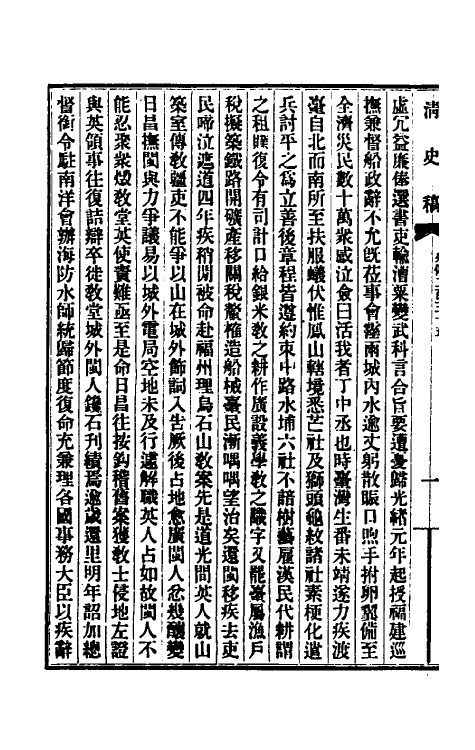 清史稿
虛冗益廉俸選書吏輸漕粟變武科言合旨要遭憂歸光緒元年起授福建巡
撫兼督船政辭不允旣莅事會霪雨城內水逾丈躬散賑口煦手拊卵翼備至
全濟災民數十萬衆感泣僉曰活我者丁中丞也時臺灣生番未靖遂力疾渡
臺自北而南所至扶服蟻伏惟鳳山轄境悉芒社及獅頭龜紋諸社素梗化遣
兵討平之爲立善後章程皆遵約束中路水埔六社不諳樹藝雇漢民代耕謂
之租𤲞復令有司計口給銀米敎之耕作廣設義學敎之識字又罷臺屬漁戶
稅擬築鐵路開礦產移關稅釐榷造船械臺民漸喁喁望治矣還閩移疾去吏
民啼泣遮道四年疾稍閒被命赴福州理烏石山敎案先是道光間英人就山
築室傳敎疆吏不能爭以山在城外飾詞入告厥後占地愈廣閩人忿幾釀變
日昌撫閩與力爭議易以城外電局空地未及行遽解職英人占如故閩人不
能忍衆衆燬敎堂英使責難亟至是命日昌往按鉤稽舊案獲敎士侵地左證
與英領事往復詰辯卒徙敎堂城外閩人鑱石刊績焉逾歲還里明年詔加總
督銜令駐南洋會辦海防水師統歸節度復命充兼理各國事務大臣以疾辭